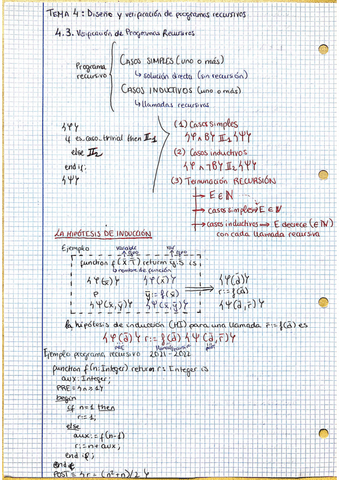 TEMA 4: Diseño y verificación de programas recursivos
4.3. Verificación de Programas Recursivos
Programa recursivo
CASOS SIMPLES (uno o más)
↳ solución directa (sin recursión)
CASOS INDUCTIVOS (uno o más)
↳ llamadas recursivas
{φ}
if es_caso_trivial then II1
else II2
end if;
{ψ}
(1) Casos simples
{φ ∧ B} II1 {ψ}
(2) Casos inductivos
{φ ∧ ¬B} II2 {ψ}
(3) Terminación RECURSIÓN
→ E ∈ ℕ
→ casos simples → E ∈ ℕ
→ casos inductivos → E decrece (∈ ℕ)
con cada llamada recursiva
LA HIPÓTESIS DE INDUCCIÓN
Ejemplo
variable
function f(x̄: T̄) return ȳ: S̄ is
nombre de función
{φ(x̄)} {φ(x̄)} {φ(ā)}
P ȳ := f(x̄) r̄ := f(ā)
{ψ(x̄,ȳ)} {ψ(x̄,ȳ)} {ψ(ā,r̄)}
La hipótesis de inducción (HI) para una llamada r̄ := f(ā) es
{φ(ā)} r̄ := f(ā) {ψ(ā,r̄)}
Ejemplo programa recursivo 2021-2022
function f(n: Integer) return r: Integer is
aux: Integer;
PRE = {n ≥ 1}
begin
if n=1 then
r := 1;
else
aux := f(n-1)
r := n + aux;
end if;
end f;
POST = {r = (n²+n)/2}